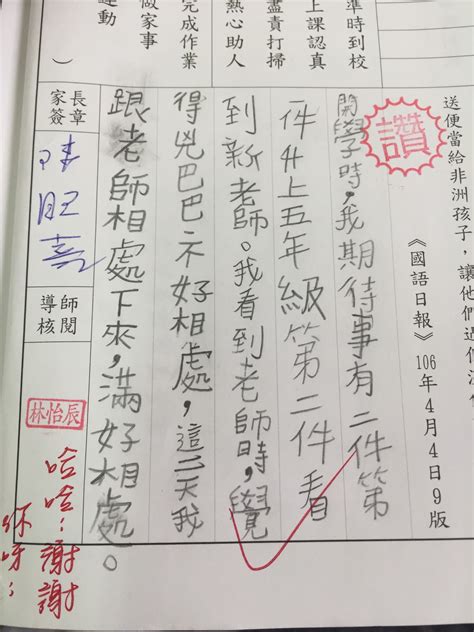 送便當給非洲孩子，讓他們
《國語日報》106年4月4日9版
讚
開學時，我期待事有二件第
一件升上五年級第二件看
到新老師。我看到老師時，覺
得兇巴巴不好相處，這二天我
跟老師相處下來，滿好相處。
準時到校
上課認真
盡責打掃
熱心助人
完成作業
做家事
運動
）
家長
簽章
導師
核閱
林怡辰
哈哈！謝謝
你呀！